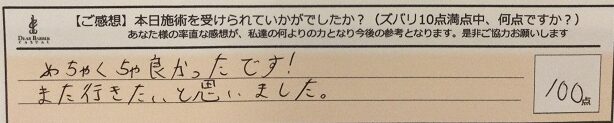 【ご感想】本日施術を受けられていかがでしたか？（ズバリ10点満点中、何点ですか？）
あなた様の率直な感想が、私達の何よりの力となり今後の参考となります。是非ご協力お願いします
めちゃくちゃ良かったです！
また行きたいと思いました。
100点